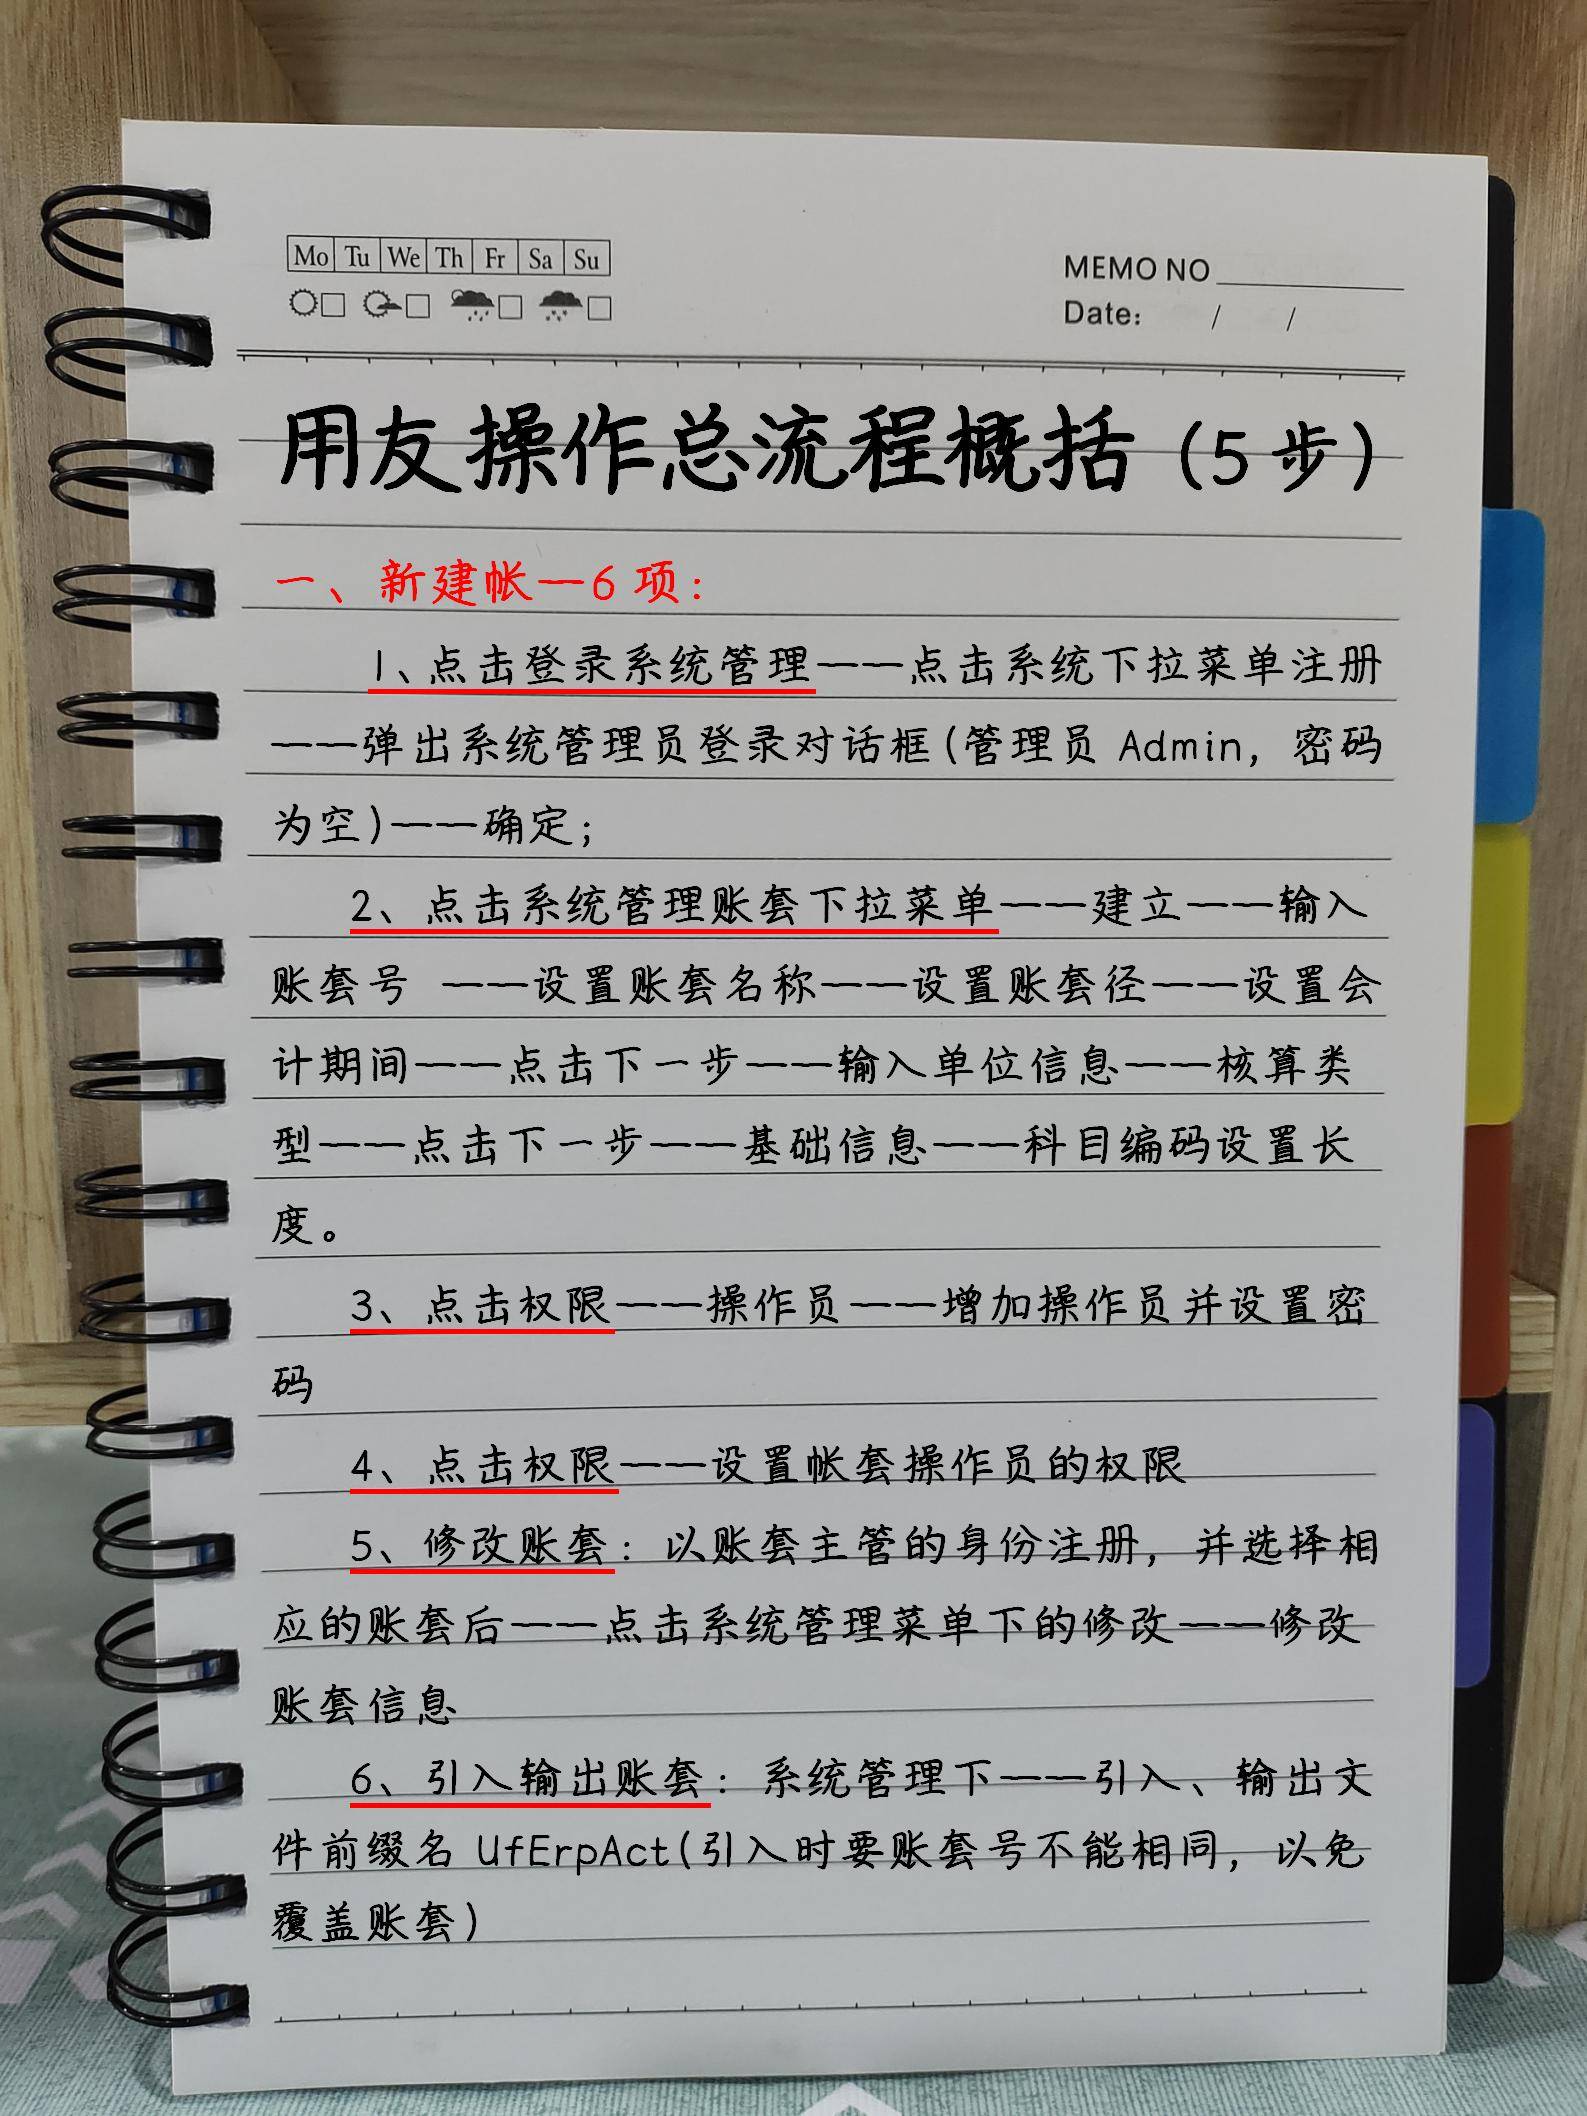 Mo Tu We Th Fr Sa Su
MEMO NO
Date: / /
用友操作总流程概括（5步）
一、新建帐—6项：
1、点击登录系统管理——点击系统下拉菜单注册
——弹出系统管理员登录对话框(管理员 Admin，密码
为空)——确定；
2、点击系统管理账套下拉菜单——建立——输入
账套号 ——设置账套名称——设置账套径——设置会
计期间——点击下一步——输入单位信息——核算类
型——点击下一步——基础信息——科目编码设置长
度。
3、点击权限——操作员——增加操作员并设置密
码
4、点击权限——设置帐套操作员的权限
5、修改账套：以账套主管的身份注册，并选择相
应的账套后——点击系统管理菜单下的修改——修改
账套信息
6、引入输出账套：系统管理下——引入、输出文
件前缀名 UfErpAct(引入时要账套号不能相同，以免
覆盖账套)